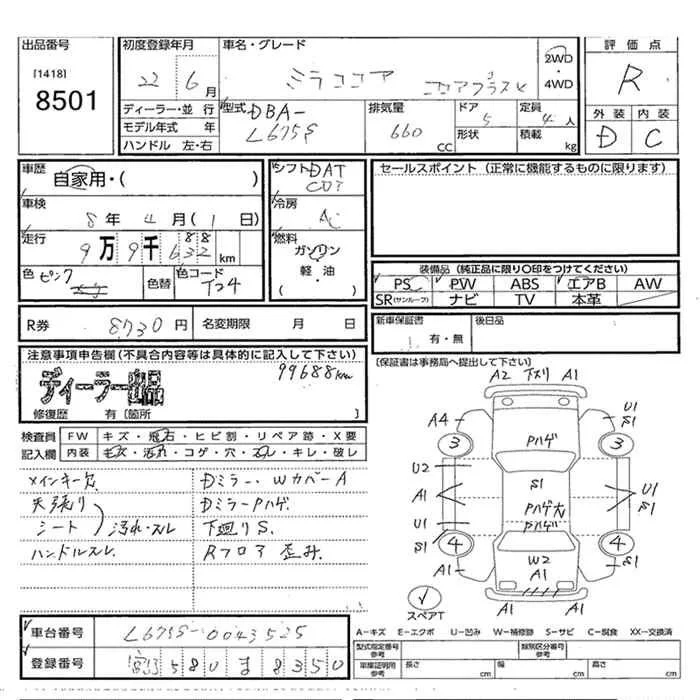 出品番号
[1418]
8501
初度登録年月
22 年 6 月
車名・グレード
ミラココア ココアプラスX
2WD
・4WD
評価点
R
外装 内装
D C
ディーラー・並行
モデル年式 年
ハンドル 左・右
型式 DBA-
L675S
排気量
660 CC
ドア 5
形状
定員 4 人
積載 kg
車歴
自家用・( )
車検
8 年 4 月 ( 1 日)
走行
9 万 9 千 6 88 km
色 ピンク
色替
色コード
T24
シフト DAT
冷房
AC
燃料
ガソリン
軽・油
・( )
セールスポイント (正常に機能するものに限ります)
装備品 (純正品に限り○印をつけてください)
PS PW ABS エアB AW
SR(サンルーフ) ナビ TV 本革
R券 8730 円 名変期限 月 日
新車保証書 後日品
有・無
注意事項申告欄 (不具合内容等は具体的に記入して下さい)
ディーラー出品
99688km
修復歴 有〔箇所 〕
〔保証書は事務局へ提出して下さい〕
検査員 FW キズ・飛石・ヒビ割・リペア跡・X要
記入欄 内装 キズ・汚れ・コゲ・穴・スレ・キレ・破レ
メインキー欠 Dミラー・WカバーA
天張り Dミラー Pハゲ
シート 汚れ・スレ 下廻りS.
ハンドルスレ Rフロア歪み.
A2 下スリ A1
A4 3 Pハゲ 3 U1 S1
U2 S1
A1 Pハゲ大 U1 S1
U1 Pハゲ
S1 4 W2 4 S1
A1 A1 A1
A1 A1
スペアT
A-キズ E-エクボ U-凹み W-補修跡 S-サビ C-腐食 XX-交換済
車台番号 L675S-0043525
登録番号 580 ま 8350
型式指定番号
参考
類別区分番号
参考
車庫証明用
参考
長さ cm 幅 cm 高さ cm